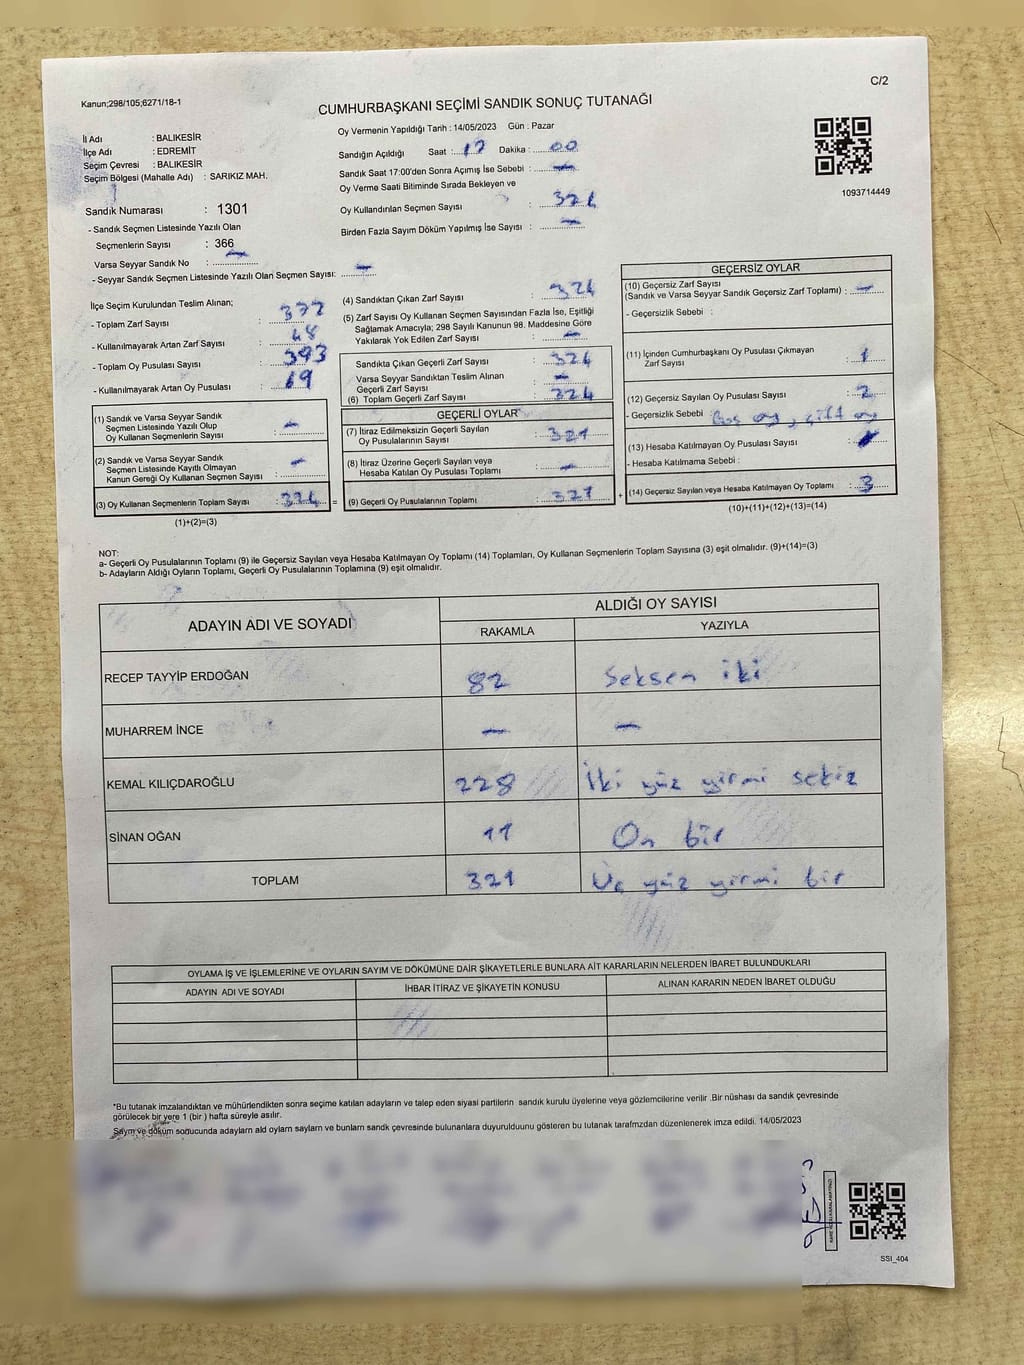 C/2
Kanun;298/105;6271/18-1
CUMHURBAŞKANI SEÇİMİ SANDIK SONUÇ TUTANAĞI
İl Adı : BALIKESİR
İlçe Adı : EDREMİT
Seçim Çevresi : BALIKESİR
Seçim Bölgesi (Mahalle Adı) : SARIKIZ MAH.
Sandık Numarası : 1301
- Sandık Seçmen Listesinde Yazılı Olan
Seçmenlerin Sayısı : 366
Varsa Seyyar Sandık No : —
- Seyyar Sandık Seçmen Listesinde Yazılı Olan Seçmen Sayısı: —
Oy Vermenin Yapıldığı Tarih : 14/05/2023 Gün : Pazar
Sandığın Açıldığı Saat : 17 Dakika : 00
Sandık Saat 17:00'den Sonra Açımış İse Sebebi : —
Oy Verme Saati Bitiminde Sırada Bekleyen ve
Oy Kullandırılan Seçmen Sayısı : 324
Birden Fazla Sayım Döküm Yapılmış İse Sayısı : —
1093714449
İlçe Seçim Kurulundan Teslim Alınan;
- Toplam Zarf Sayısı :
- Kullanılmayarak Artan Zarf Sayısı : 48
- Toplam Oy Pusulası Sayısı : 393
- Kullanılmayarak Artan Oy Pusulası : 69
(1) Sandık ve Varsa Seyyar Sandık
Seçmen Listesinde Yazılı Olup
Oy Kullanan Seçmenlerin Sayısı : —
(2) Sandık ve Varsa Seyyar Sandık
Seçmen Listesinde Kayıtlı Olmayan
Kanun Gereği Oy Kullanan Seçmen Sayısı : —
(3) Oy Kullanan Seçmenlerin Toplam Sayısı : 324 =
(1)+(2)=(3)
(4) Sandıktan Çıkan Zarf Sayısı : 324
(5) Zarf Sayısı Oy Kullanan Seçmen Sayısından Fazla İse, Eşitliği
Sağlamak Amacıyla; 298 Sayılı Kanunun 98. Maddesine Göre
Yakılarak Yok Edilen Zarf Sayısı : —
Sandıkta Çıkan Geçerli Zarf Sayısı : 324
Varsa Seyyar Sandıktan Teslim Alınan
Geçerli Zarf Sayısı : —
(6) Toplam Geçerli Zarf Sayısı : 324
GEÇERLİ OYLAR
(7) İtiraz Edilmeksizin Geçerli Sayılan
Oy Pusulalarının Sayısı : 321
(8) İtiraz Üzerine Geçerli Sayılan veya
Hesaba Katılan Oy Pusulası Toplamı : —
(9) Geçerli Oy Pusulalarının Toplamı : 321 +
GEÇERSİZ OYLAR
(10) Geçersiz Zarf Sayısı
(Sandık ve Varsa Seyyar Sandık Geçersiz Zarf Toplamı) : —
- Geçersizlik Sebebi :
(11) İçinden Cumhurbaşkanı Oy Pusulası Çıkmayan
Zarf Sayısı : 1
(12) Geçersiz Sayılan Oy Pusulası Sayısı : 2
- Geçersizlik Sebebi : Boş oy, çift oy
(13) Hesaba Katılmayan Oy Pusulası Sayısı :
- Hesaba Katılmama Sebebi :
(14) Geçersiz Sayılan veya Hesaba Katılmayan Oy Toplamı : 3
(10)+(11)+(12)+(13)=(14)
NOT:
a- Geçerli Oy Pusulalarının Toplamı (9) ile Geçersiz Sayılan veya Hesaba Katılmayan Oy Toplamı (14) Toplamları, Oy Kullanan Seçmenlerin Toplam Sayısına (3) eşit olmalıdır. (9)+(14)=(3)
b- Adayların Aldığı Oyların Toplamı, Geçerli Oy Pusulalarının Toplamına (9) eşit olmalıdır.
ADAYIN ADI VE SOYADI
ALDIĞI OY SAYISI
RAKAMLA YAZIYLA
RECEP TAYYİP ERDOĞAN 82 Seksen iki
MUHARREM İNCE — —
KEMAL KILIÇDAROĞLU 228 İki yüz yirmi sekiz
SİNAN OĞAN 11 On bir
TOPLAM 321 Üç yüz yirmi bir
OYLAMA İŞ VE İŞLEMLERİNE VE OYLARIN SAYIM VE DÖKÜMÜNE DAİR ŞİKAYETLERLE BUNLARA AİT KARARLARIN NELERDEN İBARET BULUNDUKLARI
ADAYIN ADI VE SOYADI İHBAR İTİRAZ VE ŞİKAYETİN KONUSU ALINAN KARARIN NEDEN İBARET OLDUĞU
*Bu tutanak imzalandıktan ve mühürlendikten sonra seçime katılan adayların ve talep eden siyasi partilerin sandık kurulu üyelerine veya gözlemcilerine verilir .Bir nüshası da sandık çevresinde
görülecek bir yere 1 (bir ) hafta süreyle asılır.
Sayım ve döküm sonucunda adayların ald oyların sayların ve bunların sandk çevresinde bulunanlara duyurulduunu gösteren bu tutanak tarafmzdan düzenlenerek imza edildi. 14/05/2023
SSI_404